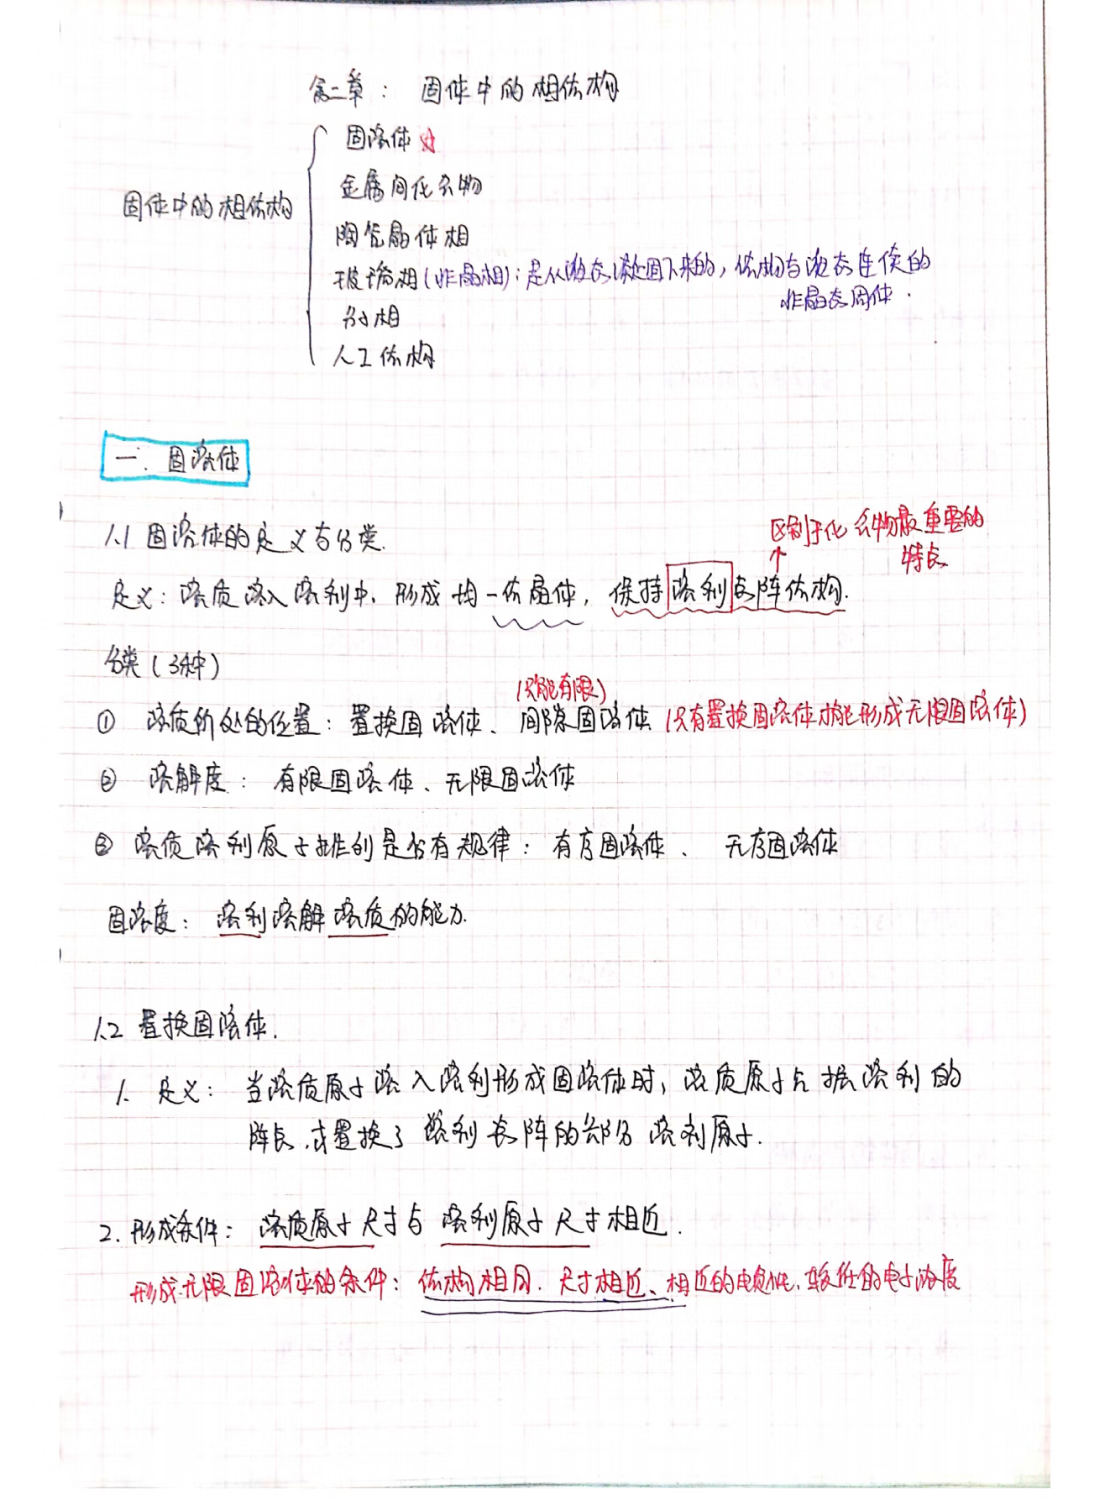 第二章： 固体中的相结构
固溶体
金属间化合物
固体中的相结构
陶瓷晶体相
玻璃相(非晶相)：是从液态凝固下来的，结构与液态连续的
非晶态固体．
分子相
人工结构
一、固溶体
1.1 固溶体的定义与分类.
区别于化合物最重要的
特点
定义：溶质溶入溶剂中，形成均一结晶体，保持溶剂点阵结构.
分类(3种)
(只能有限)
① 溶质所处的位置：置换固溶体、间隙固溶体 (只有置换固溶体才能形成无限固溶体)
② 溶解度：有限固溶体、无限固溶体
③ 溶质溶剂原子排列是否有规律：有序固溶体、 无序固溶体
固溶度：溶剂溶解溶质的能力.
1.2 置换固溶体.
1. 定义：当溶质原子溶入溶剂形成固溶体时，溶质原子占据溶剂的
阵点，或置换了溶剂点阵的部分溶剂原子.
2. 形成条件：溶质原子尺寸与溶剂原子尺寸相近.
形成无限固溶体的条件：结构相同、尺寸相近、相近的电负性、较低的电子浓度